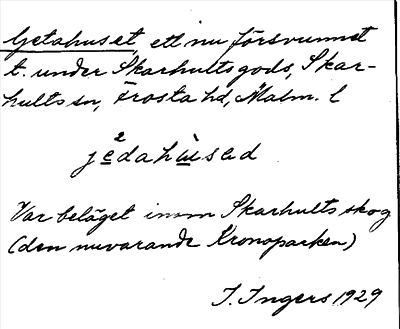 Getahuset, ett nu försvunnet
t. under Skarhults gods, Skar-
hults sn, Frosta hd, Malm. l
Var beläget inom Skarhults skog
(den nuvarande Kronoparken)
I. Ingers 1929